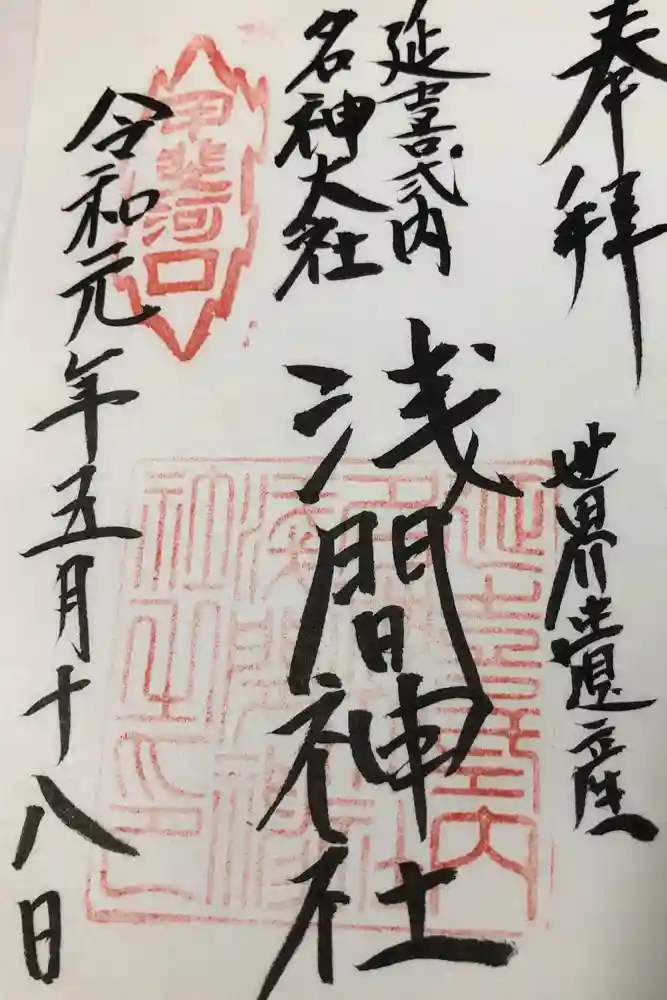 奉拝
世界遺産
延喜式内
名神大社
浅間神社
甲斐河口
令和元年五月十八日